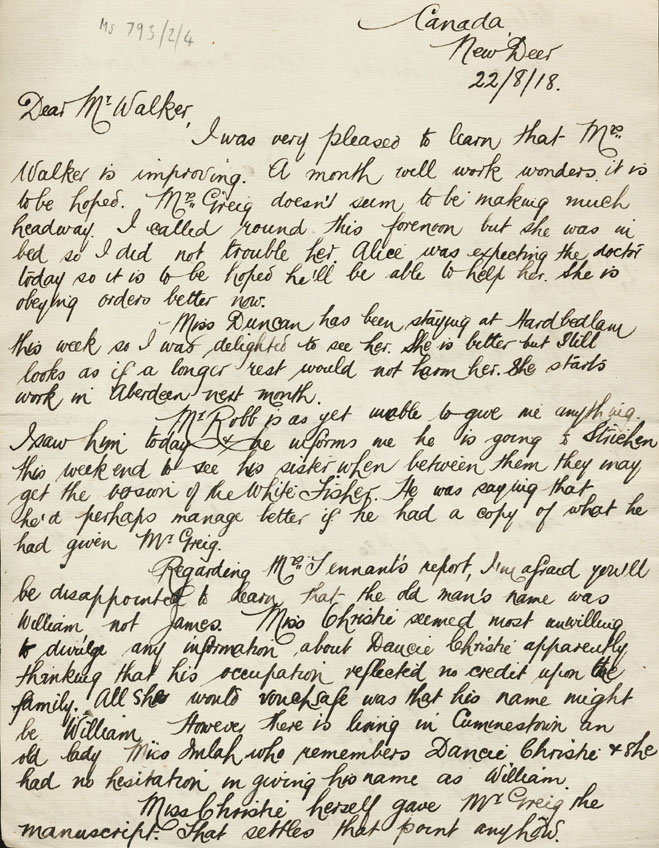 Ms 793/2/4.
Canada,
New Deer
22/8/18.
Dear Mr. Walker,
I was very pleased to learn that Mrs.
Walker is improving. A month will work wonders it is
to be hoped. Mrs. Greig doesn't seem to be making much
headway. I called round this forenoon but she was in
bed so I did not trouble her. Alice was expecting the doctor
today so it is to be hoped he'll be able to help her. She is
obeying orders better now.
Miss Duncan has been staying at Hardbedlam
this week so I was delighted to see her. She is better but still
looks as if a longer rest would not harm her. She starts
work in Aberdeen next month.
Mr Robb is as yet unable to give me anything.
I saw him today & he informs me he is going to Strichen
this weekend to see his sister when between them they may
get the version of the White Fisher. He was saying that
he'd perhaps manage better if he had a copy of what he
had given Mr. Greig.
Regarding Mrs. Tennant's report, I'm afraid you'll
be disappointed to learn that the old man's name was
William not James. Miss Christie seemed most unwilling
to divulge any information about Dancie Christie apparently
thinking that his occupation reflected no credit upon the
family. All she would vouchsafe was that his name might
be William. However there is living in Cuminestown an
old lady Miss Imlah who remembers Dancie Christie & she
had no hesitation in giving his name as William.
Miss Christie herself gave Mr Greig the
manuscript. That settles that point anyhow.